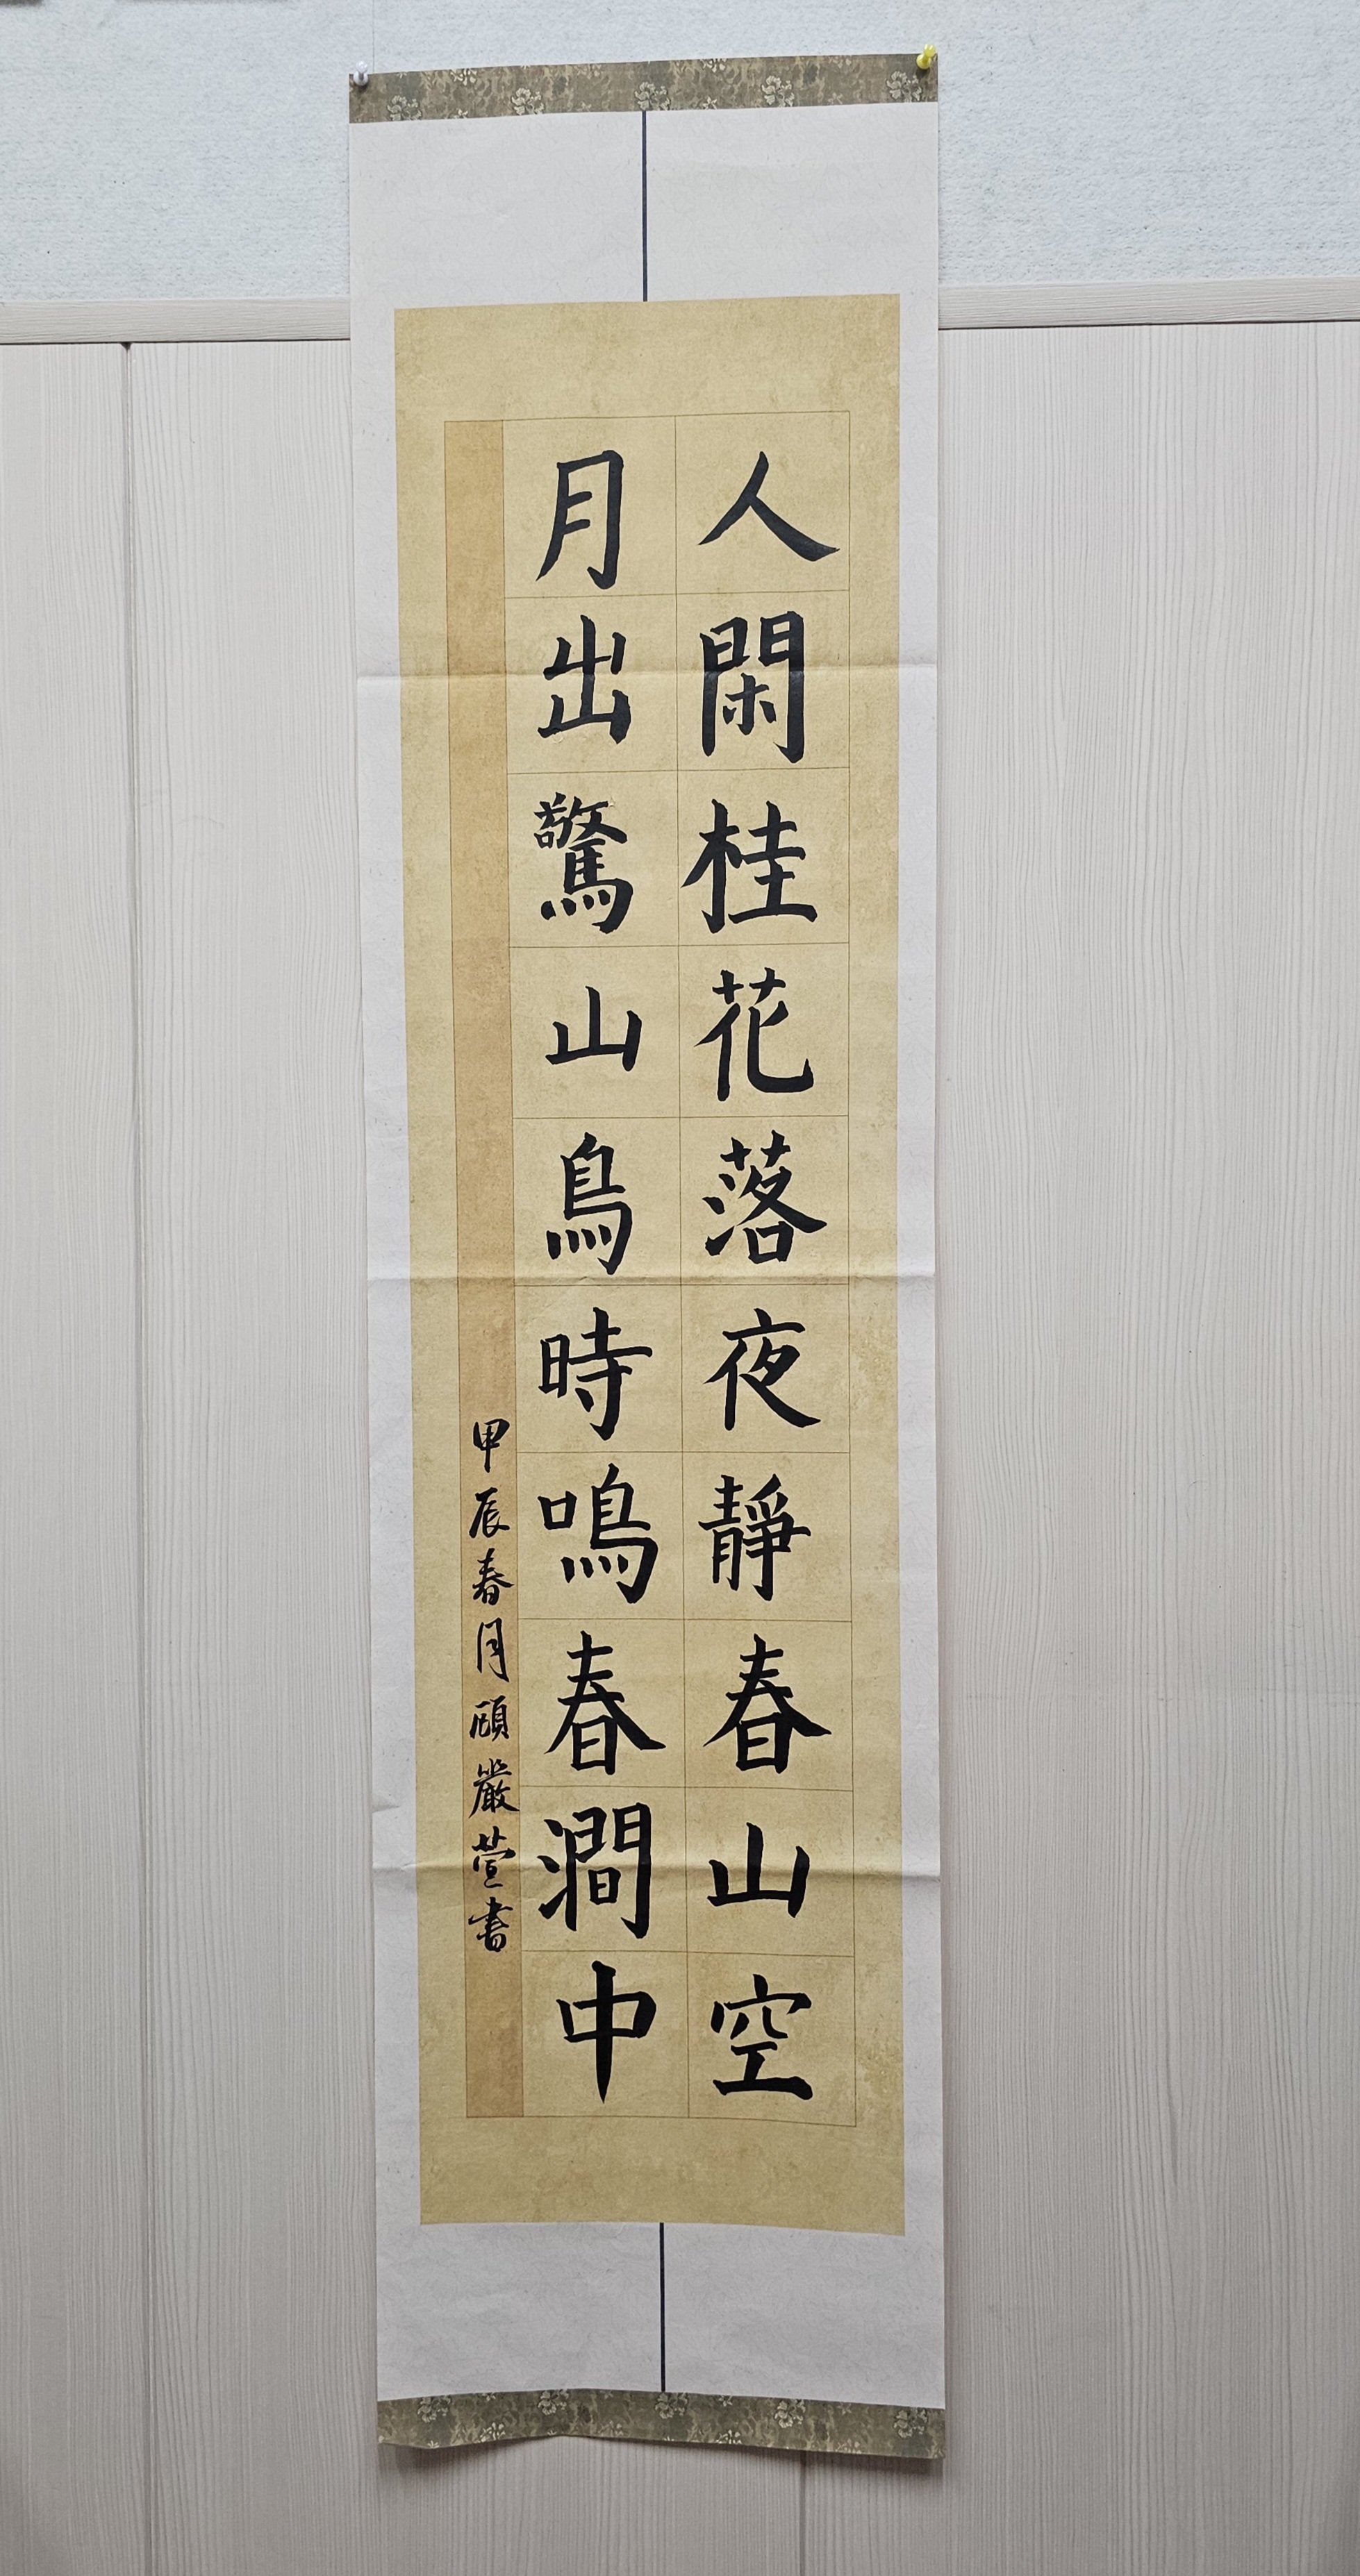 人閑桂花落夜靜春山空
月出驚山鳥時鳴春澗中
甲辰春月頤嚴萱書